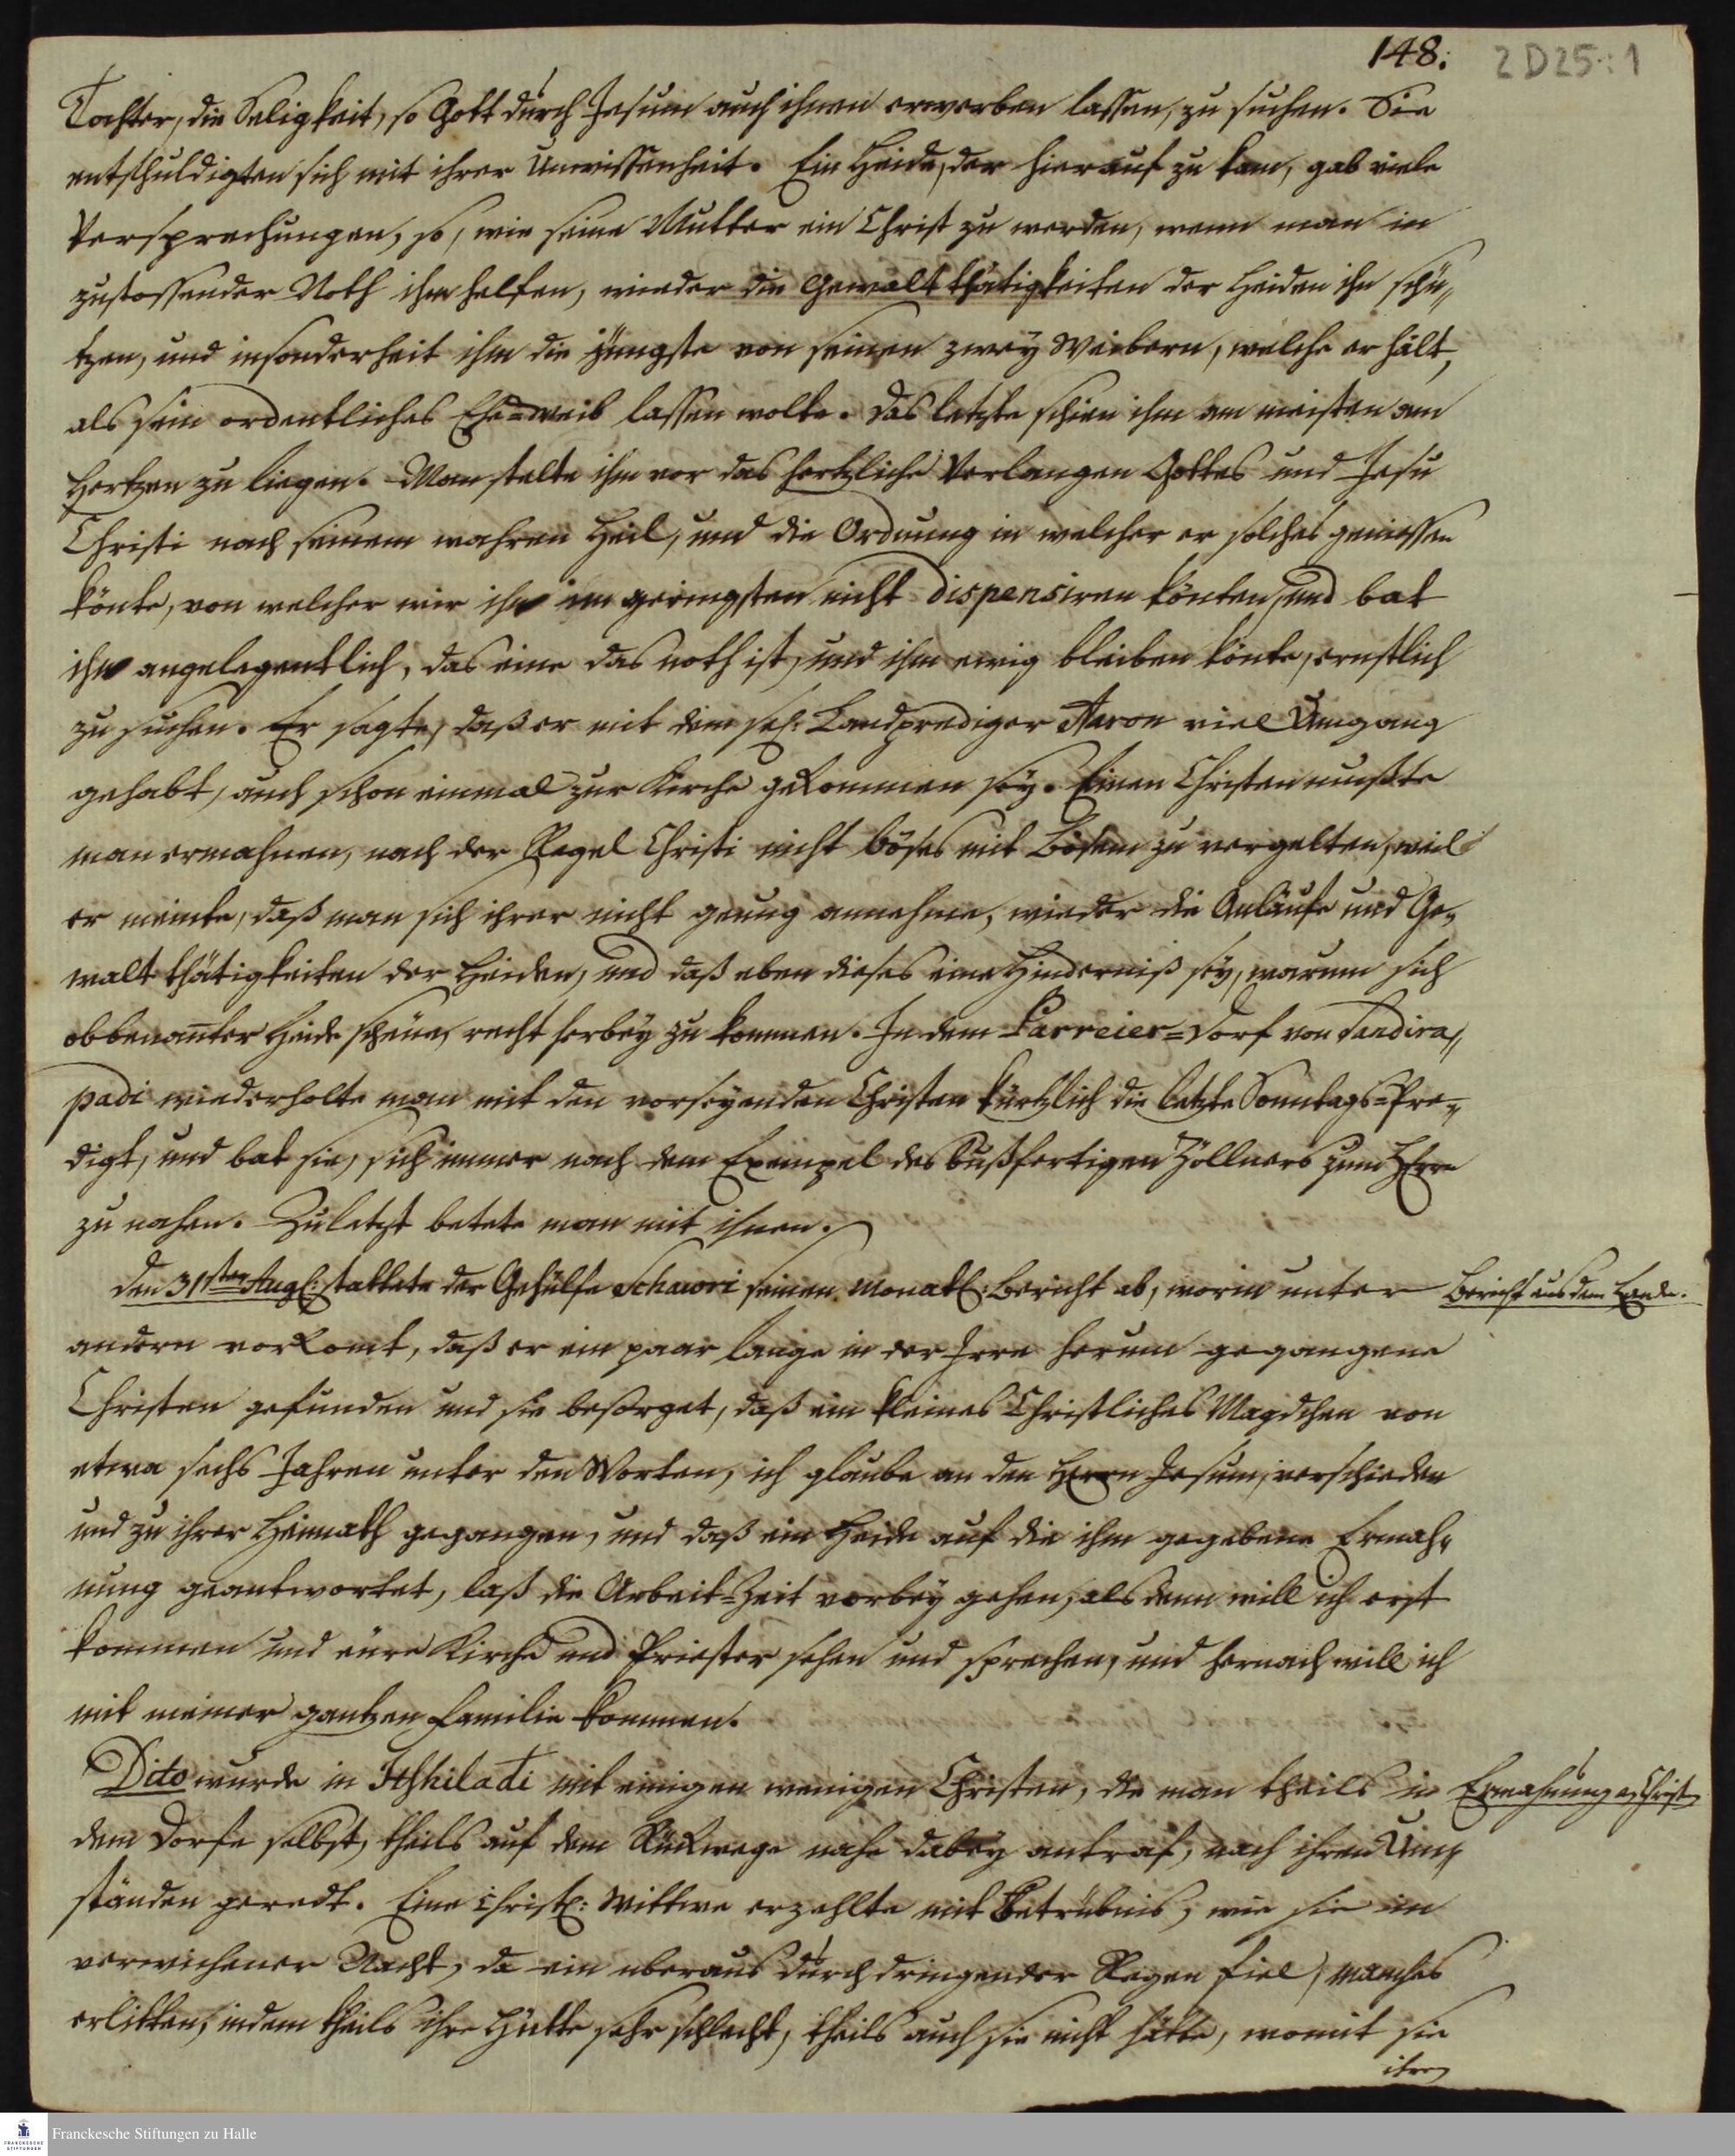 148.
2 D25:1
Tochter, die Seligkeit, so Gott durch Jesum auch ihnen erworben lassen, zu suchen. Sie
entschuldigten sich mit ihrer Unwissenheit. Ein Heide, der hierauf zu kam, gab viele
Versprechungen, so, wie seine Mutter ein Christ zu werden, wenn man in
zustossender Noth ihm helfen, wieder die Gewaltthätigkeiten der Heiden ihn schü„
tzen, und insonderheit ihm die jüngste von seinen zwey Weibern, welche er hält,
als sein ordentliches Ehe=weib lassen wolte. Das letzte schien ihm am meisten am
Hertzen zu liegen. Man stelte ihm vor das hertzliche Verlangen Gottes und Jesu
Christi nach seinem wahren Heil, und die Ordnung in welcher er solches geniessen
könte, von welcher wir ihn im geringsten nicht dispensiren könten, und bat
ihn angelegentlich, das eine das noth ist, und ihm ewig bleiben könte, ernstlich
zu suchen. Er sagte, daß er mit dem sel: Landprediger Aaron viel Umgang
gehabt, auch schon einmal zur Kirche gekommen sey. Einen Christen mußte
man ermahnen, nach der Regel Christi nicht böses mit Bösem zu vergelten, weil
er meinte, daß man sich ihrer nicht genug annehme, wieder die Anläufe und Ge„
waltthätigkeiten der Heiden, und daß eben dieses eine Hinderniß sey, warum sich
obbenanter Heide scheue, recht herbey zu kommen. In dem Parreier=Dorf von Sandira„
padi wiederholte man mit den vorseyenden Christen kürtzlich die letzte Sonntags=Pre„
digt, und bat sie, sich immer nach dem Exempel des bußfertigen Zöllners zum HErrn
zu nahen. Zuletzt betete man mit ihnen.
Den 31sten Aug: stattete der Gehülfe Schawri seinen Monatl: Bericht ab, worin unter
Bericht aus dem Lande.
andern vorkomt, daß er ein paar lange in der Irre herum gegangene
Christen gefunden und sie besorget, daß ein kleines Christliches Magdchen von
etwa sechs Jahren unter den Worten, ich glaube an den HErrn Jesum, verschieden
und zu ihrer Heimath gegangen, und daß ein Heide auf die ihm gegebene Ermah„
nung geantwortet, laß die Arbeit=Zeit vorbey gehen, alsdenn will ich erst
kommen und eure Kirche und Priester sehen und sprechen, und hernach will ich
mit meiner gantzen Familie kommen.
Dito wurde in Itshiladi mit einigen wenigen Christen, die man theils in
Ermahnung a, Christ,
dem Dorfe selbst, theils auf dem Rückwege nahe dabey antraf, nach ihren Um„
ständen geredt. Eine Christl: Wittwe erzehlte mit Betrübnis, wie sie in
verwichener Nacht, da ein uberaus durchdringender Regen fiel, manches
erlitten, indem theils ihre Hütte sehr schlecht, theils auch sie nicht hätte, womit sie
ihre
Franckesche Stiftungen zu Halle
FRANCKESCHE STIFTUNGEN